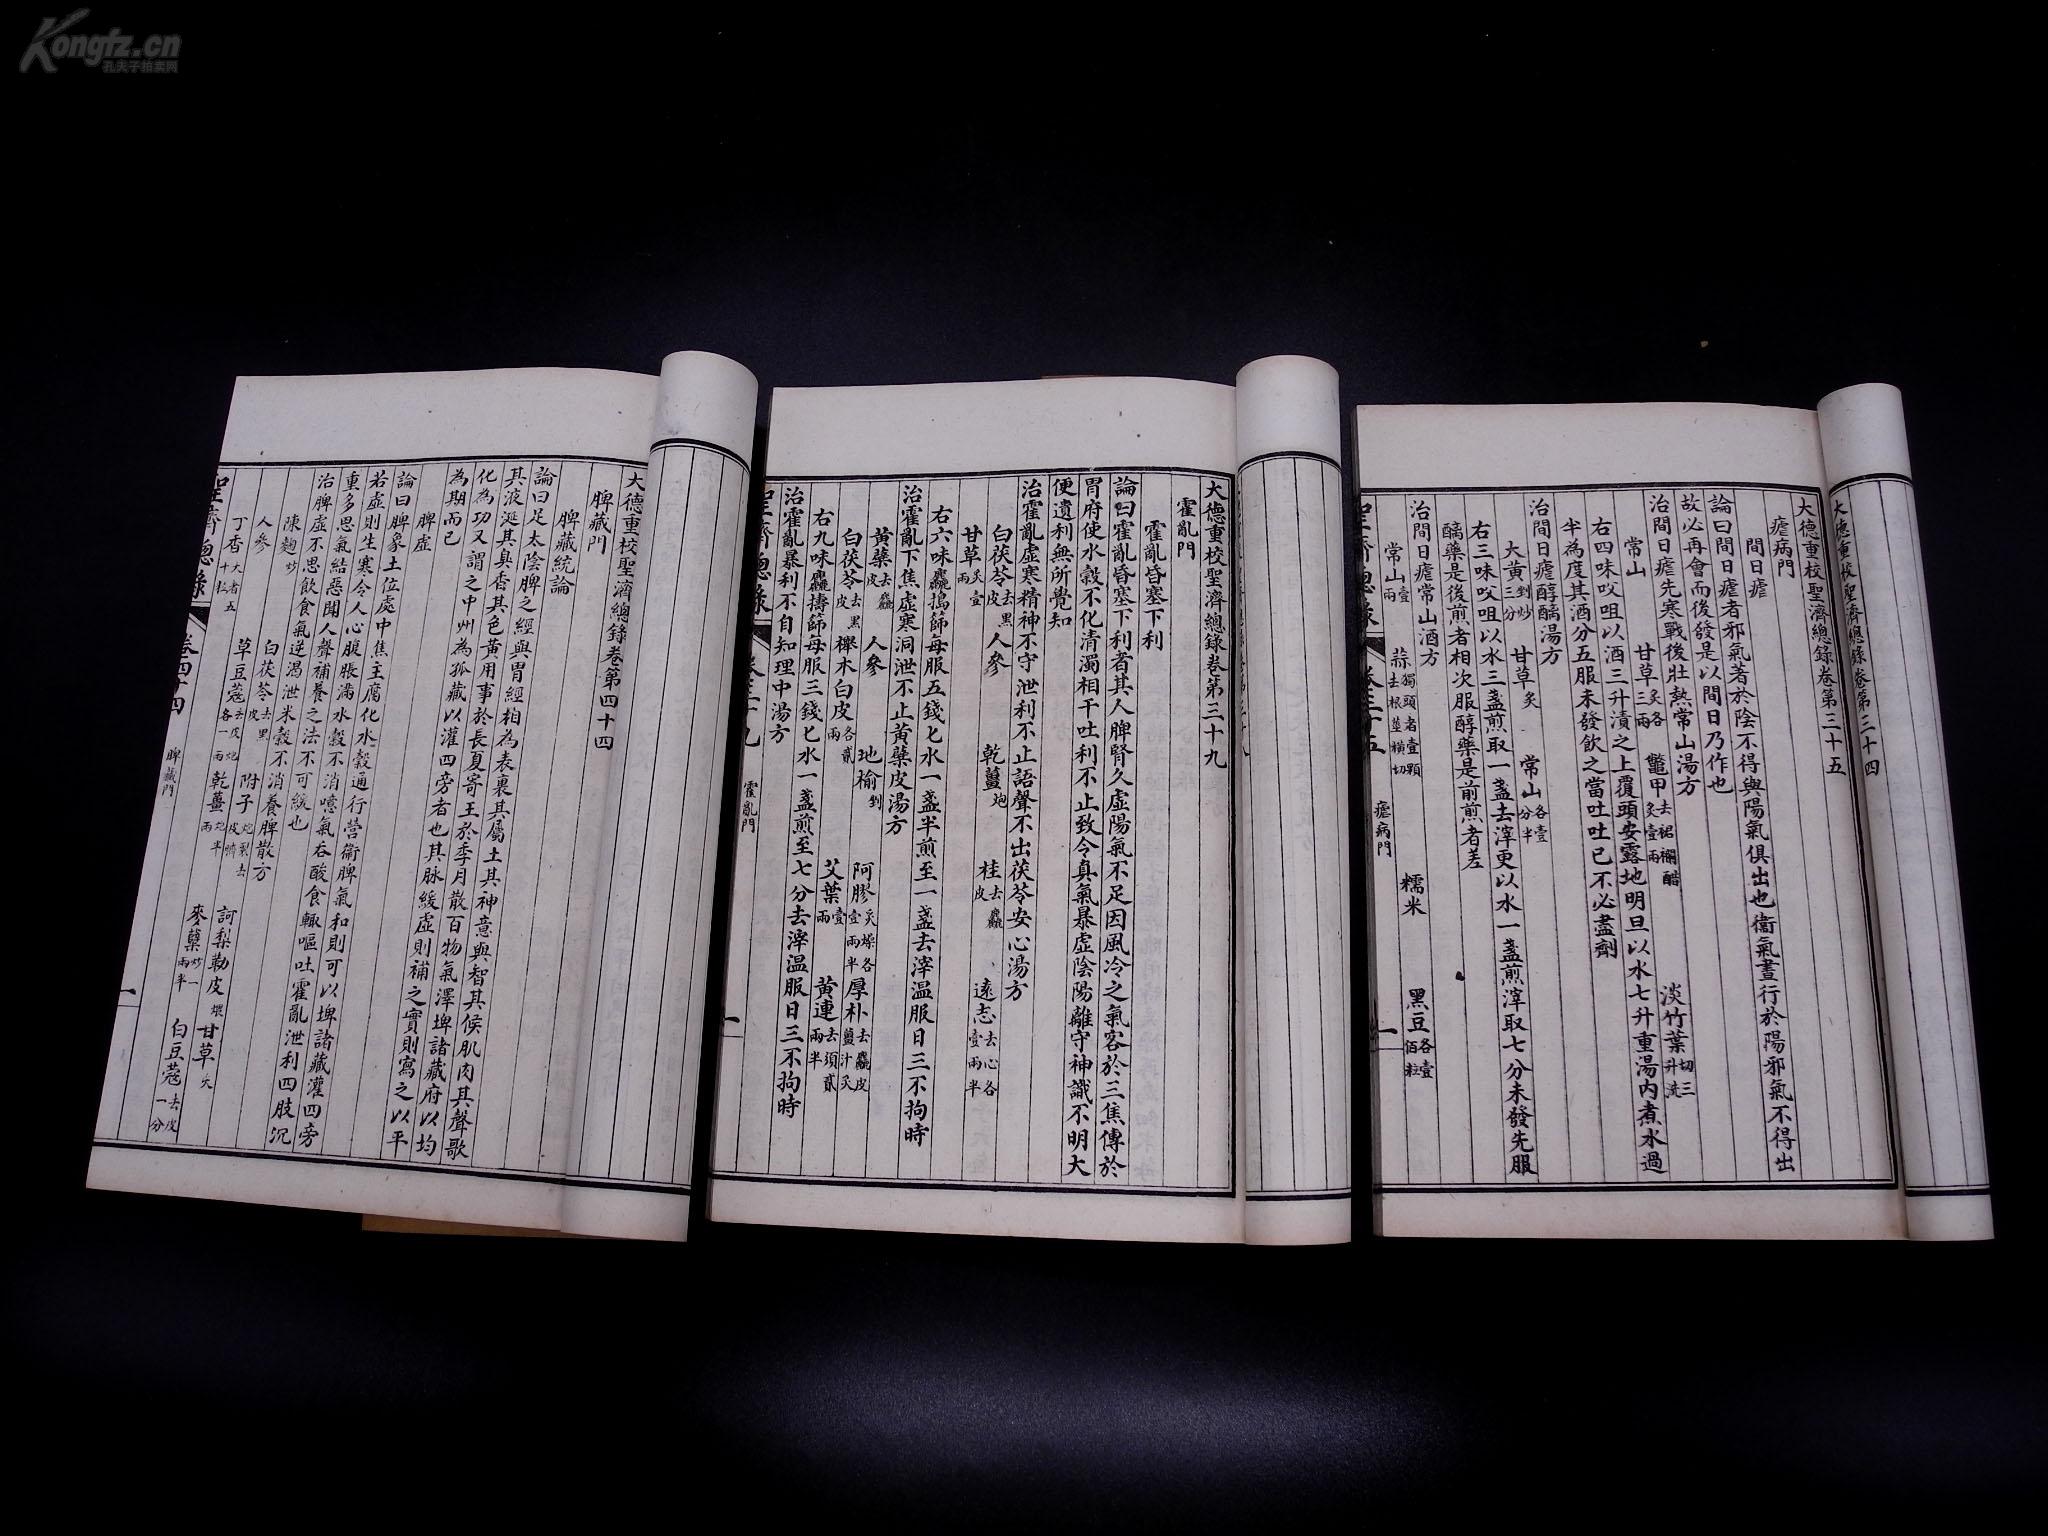 Kongfz.cn
孔夫子拍卖网
大德重校聖濟總錄卷第三十四
大德重校聖濟總錄卷第三十五
瘧病門
間日瘧
論曰間日瘧者邪氣著於陰不得與陽氣俱出也衞氣晝行於陽邪氣不得出
故必再會而後發是以間日乃作也
治間日瘧先寒戰後壯熱常山湯方
常山 甘草炙各三兩 鼈甲去裙襴醋炙壹兩 淡竹葉切三升洗
右四味㕮咀以酒三升漬之上覆頭安露地明旦以水七升重湯內煮水過
半為度其酒分五服未發飲之當吐吐已不必盡劑
治間日瘧醇醨湯方
大黃剉炒三分 甘草炙 常山各壹分半
右三味㕮咀以水三盞煎取一盞去滓更以水一盞煎滓取七分未發先服
醨藥是後煎者相次服醇藥是前煎者差
治間日瘧常山酒方
常山壹兩 蒜獨頭者壹顆去根莖橫切 糯米 黑豆各壹佰粒
聖濟總錄 卷三十五 瘧病門 一
大德重校聖濟總錄卷第三十九
霍亂門
霍亂昏塞下利
論曰霍亂昏塞下利者其人脾腎久虛陽氣不足因風冷之氣客於三焦傳於
胃府使水穀不化清濁相干吐利不止致令真氣暴虛陰陽離守神識不明大
便遺利無所覺知
治霍亂虛寒精神不守泄利不止語聲不出茯苓安心湯方
白茯苓去黑皮 人參 乾薑炮 桂去麤皮 遠志去心各壹兩半
甘草炙壹兩
右六味麤搗篩每服五錢匕水一盞半煎至一盞去滓溫服日三不拘時
治霍亂下焦虛寒洞泄不止黃蘗皮湯方
黃蘗去麤皮 人參 地榆剉 阿膠炙燥各壹兩半 厚朴去麤皮薑汁炙
白茯苓去黑皮 櫸木白皮各貳兩 艾葉壹兩 黃連去須貳兩半
右九味麤擣篩每服三錢匕水一盞煎至七分去滓溫服日三不拘時
治霍亂暴利不自知理中湯方
聖濟總錄 卷三十九 霍亂門 一
大德重校聖濟總錄卷第四十四
脾藏門
脾藏統論
論曰足太陰脾之經與胃經相為表裏其屬土其神意與智其候肌肉其聲歌
其液涎其臭香其色黃用事於長夏寄王於季月散百物氣澤埤諸藏府以均
化為功又謂之中州為孤藏以灌四旁者也其脉緩虛則補之實則寫之以平
為期而已
脾虛
論曰脾象土位處中焦主腐化水穀通行營衞脾氣和則可以埤諸藏灌四旁
若虛則生寒令人心腹脹滿水穀不消噫氣吞酸食輙嘔吐霍亂泄利四肢沉
重多思氣結惡聞人聲補養之法不可緩也
治脾虛不思飲食氣逆渴泄米穀不消養脾散方
陳麴炒 白茯苓去黑皮 附子炮裂去皮臍 訶梨勒皮煨 甘草炙
人參 草豆蔻去皮各一兩 乾薑炮半兩 麥蘗炒一兩半 白豆蔻去皮一分
丁香大者五十粒
聖濟總錄 卷四十四 脾藏門 一